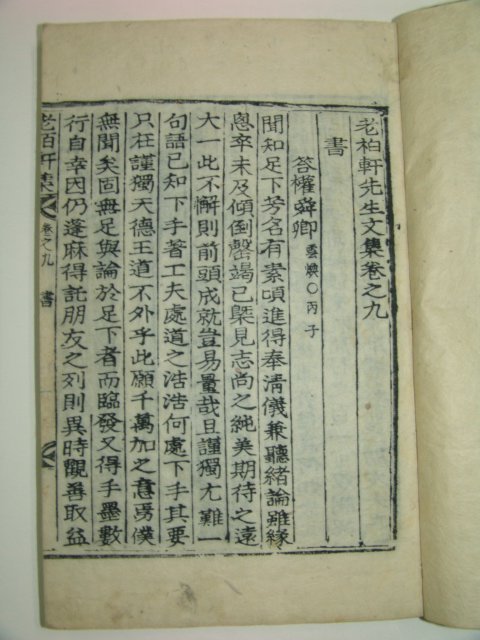 老柏軒先生文集卷之九
書
答權舜卿 雲煥○丙子
聞知足下芳名有素頃進得奉清儀兼聽緒論雖緣
悤卒未及傾倒罄竭已槩見志尚之純美期待之遠
大一此不懈則前頭成就豈易量哉且謹獨尤難一
句語已知下手著工夫處道之浩浩何處下手其要
只在謹獨天德王道不外乎此願千萬加之意焉僕
無聞矣固無足與論於足下者而臨發又得手墨數
行自幸因仍蓬麻得託朋友之列則異時觀善取益
老柏軒集 卷之九 書